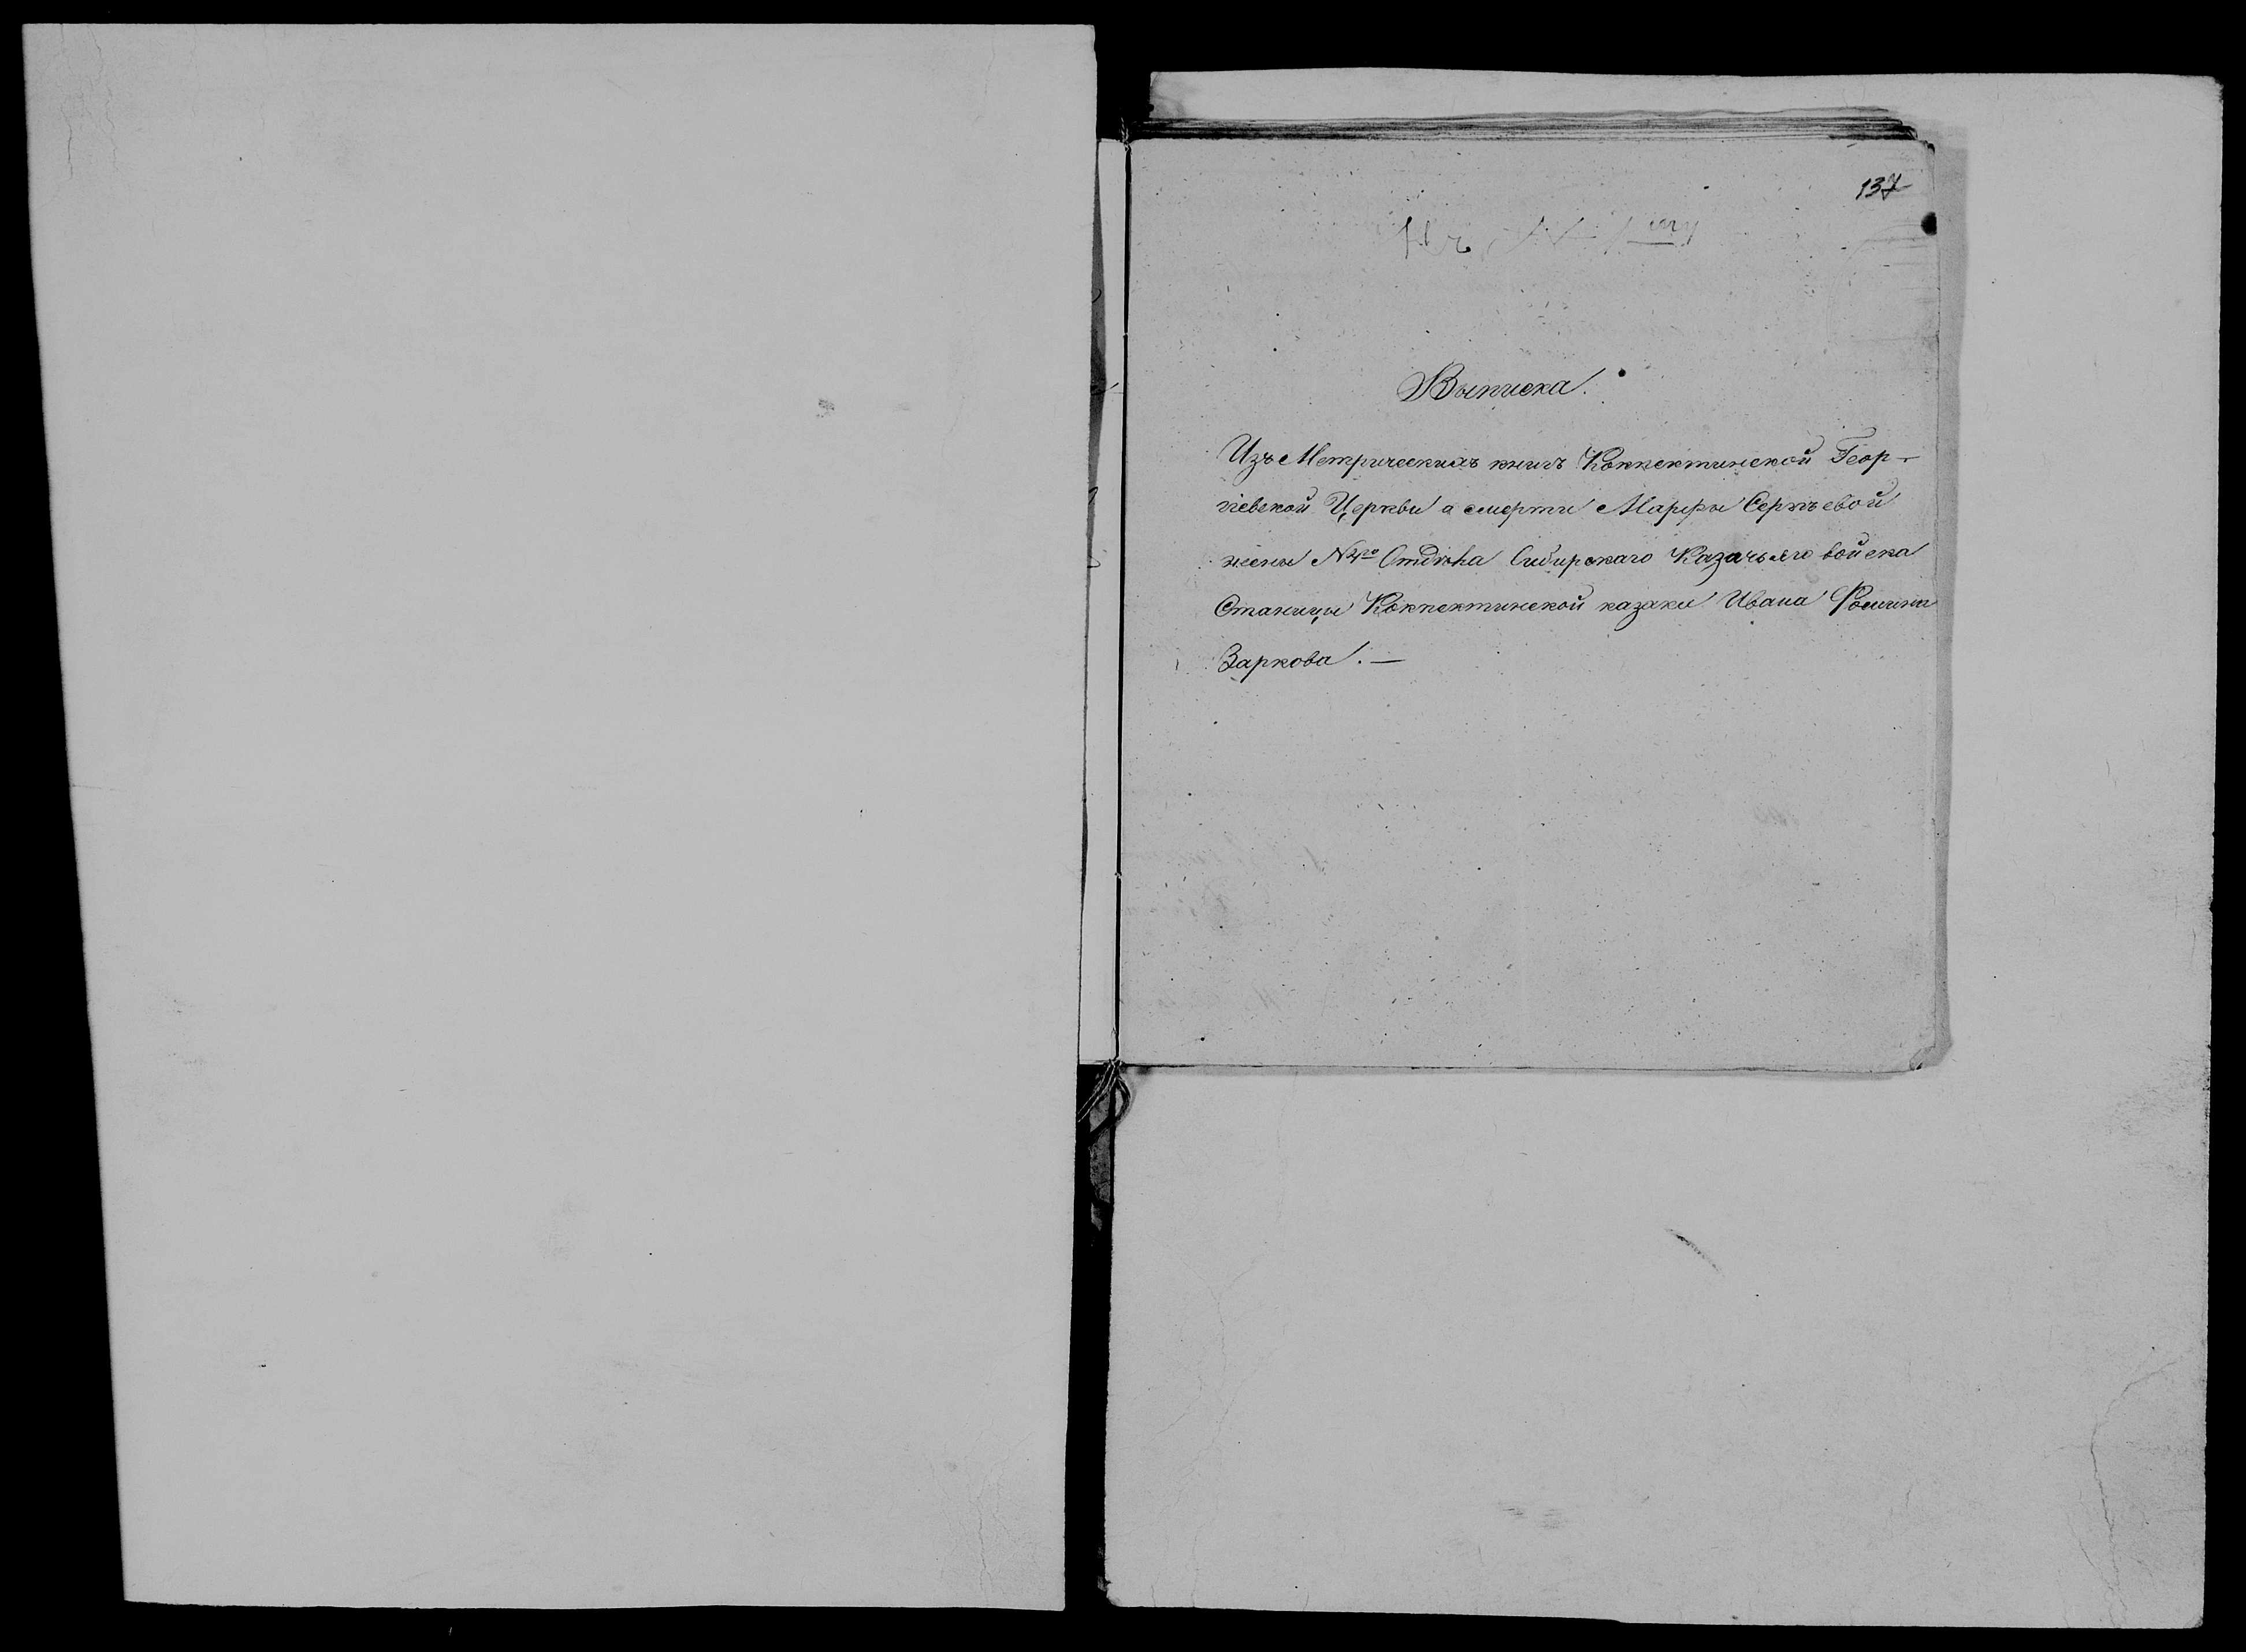 137
Выписка.
Изъ Метрическихъ книгъ Кокпектинской Геор-
гіевской Церкви о смерти Марфы Сергѣевой
жены №4го Отдѣла Сибирскаго Казачьяго войска
Станицы Кокпектинской казака Ивана Фомина
Заркова. —